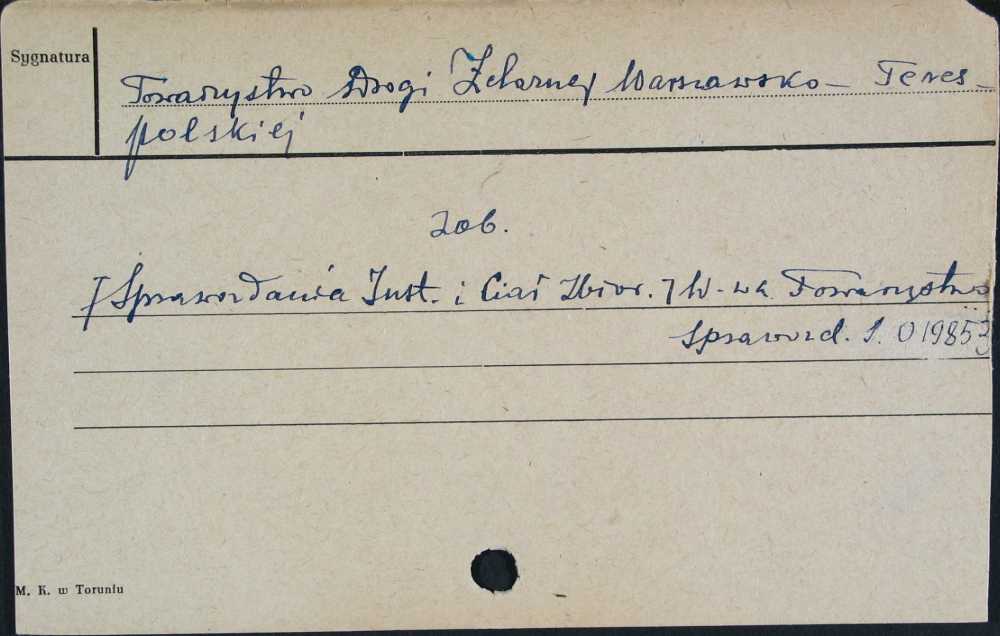 Sygnatura
Towarzystwo Drogi Żelaznej Warszawsko- Teres-
polskiej
zob.
[Sprawozdania Inst. i Ciał Zbior.] W-wa Towarzystwo
Sprawozd. S. 019853
M. K. w Toruniu